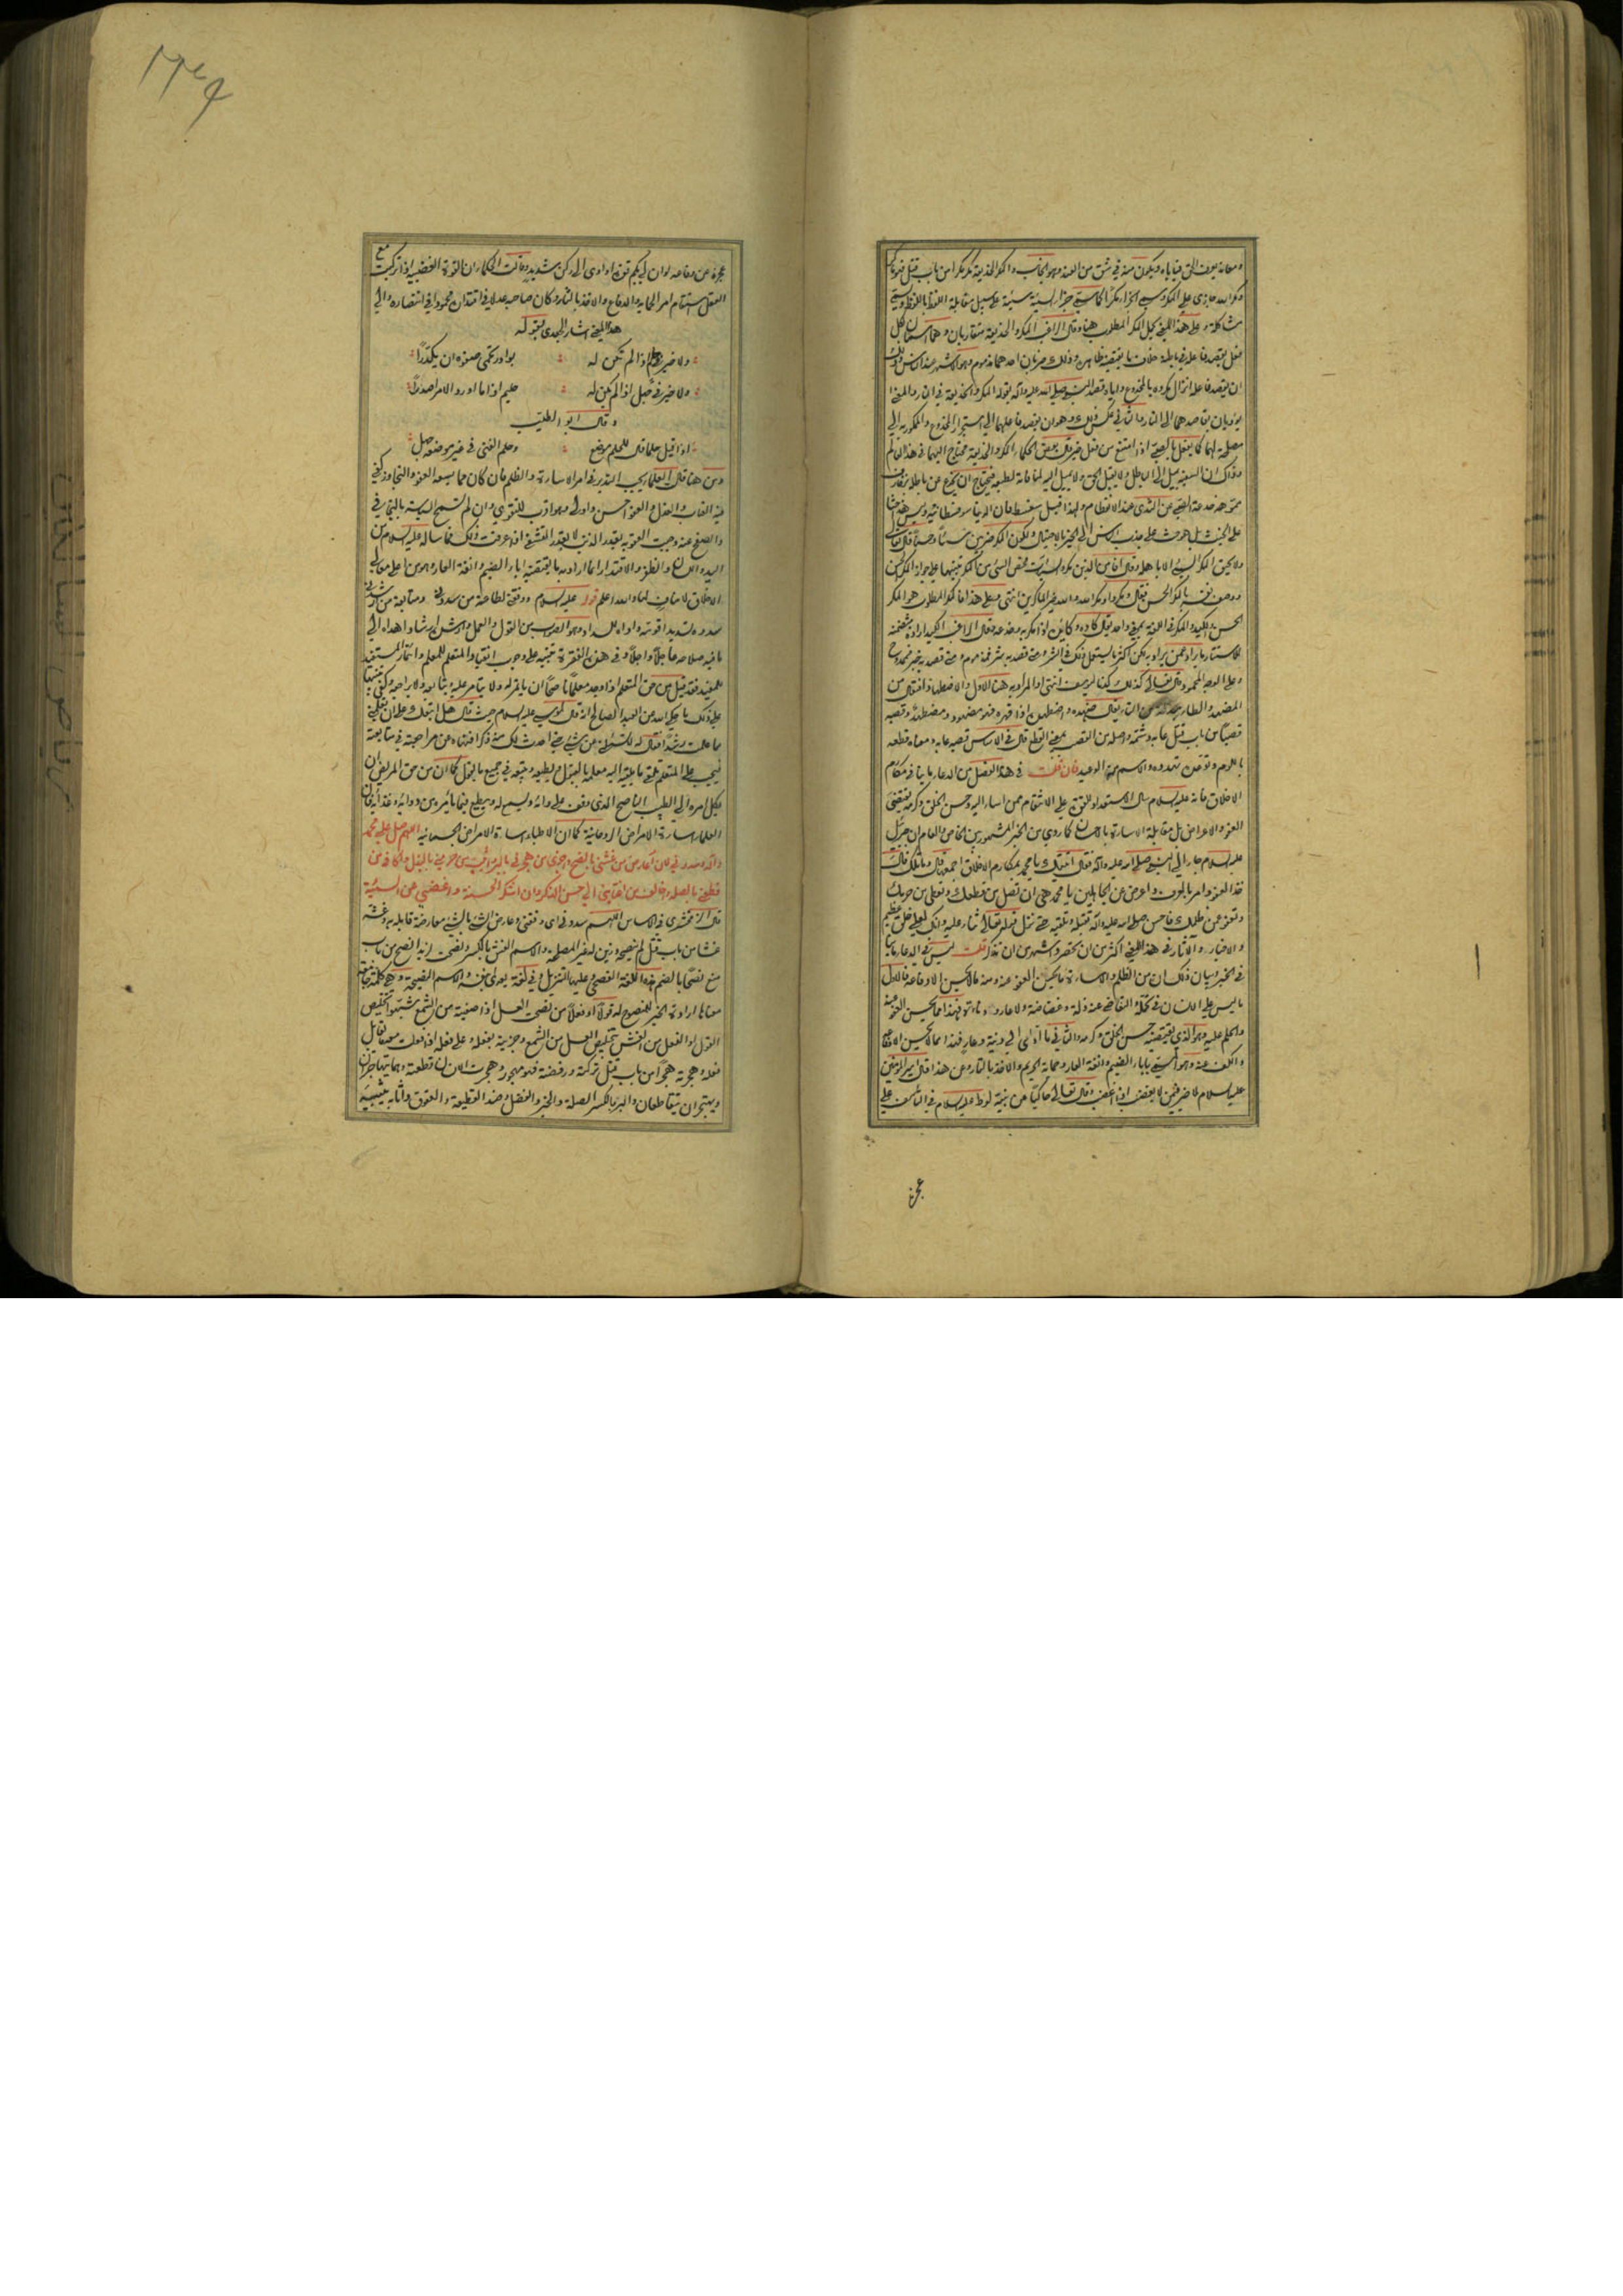 ومعاندة يعرف الحق فيأباه ويكون منه في شق من العند وهو الجانب والمكر الخديعة مكر مكرا من باب قتل فهو ماكر
ومكر الله جازى على المكر وسمي الجزاء مكرا كما سمي جزاء السيئة سيئة على سبيل مقابلة اللفظ باللفظ ويسمى
مشاكلة وعلى هذا المعنى يحمل المكر المطلوب هنا وقال الراغب المكر والخديعة متقاربان وهما اسمان لكل
فعل يقصد فاعله في باطنه خلاف ما يقتضيه ظاهره وذلك ضربان احدهما مذموم وهو الاشهر عند الناس وذلك
ان يقصد فاعله انزال مكروه بالمخدوع واياه قصد النبي صلى الله عليه وآله بقوله المكر والخديعة في النار والمعنى انهما
يؤديان بقاصدهما الى النار والثاني عكس ذلك وهو ان يقصد فاعلهما الى استجرار المخدوع والممكور به الى
مصلحة لهما كما يفعل بالصبي اذا امتنع من فعل خير قال بعض الحكماء المكر والخديعة محتاج اليهما في هذا العالم
وذلك ان السفيه يميل الى الباطل ولا يقبل الحق ولا يميل اليه لمنافاته لطبعه فيحتاج ان يخدع عن باطله بزخارف
مموهة خدعة الصبي عن الثدي عند الانفطام ولهذا قيل مفسطا فان الدنيا سوفسطائية وليس هذا حثا
على الخبث بل هو حث على جذب الناس الى الخير بالاحتيال ولكون المكر ضربين سيئا وحسنا قال تعالى
ولا يحيق المكر السيئ الا باهله وقال افأمن الذين مكروا السيئات فخص السيئ من المكر تنبيها على جواز المكر الحسن
ووصف نفسه بالمكر الحسن فقال ومكروا ومكر الله والله خير الماكرين انتهى وعلى هذا فالمكر المطلوب هو المكر
الحسن والكيد والمكر في اللغة بمعنى واحد يقال كاده وكايده اذا مكر به وخدعه وقال الراغب الكيد ارادة متضمنة
لاستتار ما يراد عمن يراد به لكن اكثر ما يستعمل ذلك في الشر ومتى قصد به شر فمذموم ومتى قصد به خير فممدوح
وعلى الوجه المحمود قال تعالى كذلك كدنا ليوسف انتهى والمراد به هنا الاول والاضطهاد افتعال من
الضهد والطاء بدل من التاء يقال ضهده واضطهده اذا قهره فهو مضهود ومضطهد وقصبه
قصبا من باب قتل عابه وشتمه واصله من القصب بمعنى القطع قال في الاساس قصبه عابه ومعناه قطعه
باللوم وتوعده تهدده والاسم منه الوعيد فان قلت في هذا الفصل من الدعاء ما ينافي مكارم
الاخلاق فانه عليه السلام سأل الاستعداد للقوة على الانتقام ممن اساء اليه وحسن الخلق وكرمه يقتضي
العفو والاعراض بل مقابلة الاساءة بالاحسان كما روي من الخبر المشهور بين الخاص والعام ان جبرئيل
عليه السلام جاء الى النبي صلى الله عليه وآله فقال اتيتك يا محمد بمكارم الاخلاق اجمعها قال وما تلك قال
خذ العفو وامر بالعرف واعرض عن الجاهلين يا محمد هي ان تصل من قطعك وتعطي من حرمك
وتعفو عمن ظلمك فاحسن صلى الله عليه وآله تقبله وتلقيه حتى نزل قوله تعالى ثناء عليه وانك لعلى خلق عظيم
والاخبار والآثار في هذا المعنى اكثر من ان تحصر واشهر من ان تذكر قلت ليس في الدعاء ما
في الخبر وبيان ذلك ان من الظلم والاساءة ما يحسن العفو عنه ومنه ما لا يحسن الا دفاعه فالاول
ما ليس على الانسان في تحمله والتغاضي عنه ذلة وغضاضة ولا عار ومنقصة فهذا مما يحسن العفو عنه
والحلم عليه وهو الذي يقتضيه حسن الخلق وكرمه والثاني ما آذى الى دنية وعار فهذا مما لا يحسن الاغضاء
والكف عنه وهو المسمى باباء الضيم وانفة العار وحماية الحريم والاخذ بالثار وعن هذا قال امير المؤمنين
عليه السلام لا خير فيمن لا يغضب اذا اغضب وقال تعالى حاكيا عن نبيه لوط عليه السلام في التأسف على
عجزه
عجزه عن دفاعه لو ان لي بكم قوة او آوي الى ركن شديد وقالت الحكماء ان القوة الغضبية اذا تركبت مع
العقل استقام امر الحماية والدفاع والاخذ بالثار وكان صاحبه عدلا في اقتداره محمودا في انتصاره والى
هذا المعنى اشار الجعدي بقوله
ولا خير في حلم اذا لم تكن له بوادر تحمي صفوه ان يكدرا
ولا خير في جهل اذا لم يكن له حليم اذا ما اورد الامر اصدرا
وقال ابو الطيب
اذا قيل حلما قال للحلم موضع وحلم الفتى في غير موضعه جهل
ومن هنا قال العلماء يجب التدبر في امر الاساءة والظلم فان كان مما يسعه العفو والتجاوز كفى
فيه العتاب والعذل والعفو احسن واولى وهو اقرب للتقوى وان لم تسمح السياسة بالتجافي
والصفح عنه وجبت العقوبة بقدر الذنب لا بقدر التشفي اذا عرفت ذلك فما سأله عليه السلام من
اليد واللسان والظفر والاقتدار انما اراد به ما يقتضيه اباء الضيم وانفة العار وهو من اعلى معالي
الاخلاق لا مناف لها والله اعلم قوله عليه السلام ووفقني لطاعة من سددني ومتابعة من ارشدني
سدده تسديدا قومه وارشده للسداد وهو الصواب من القول والعمل وارشده ارشادا هداه الى
ما فيه صلاحه عاجلا وآجلا وفي هذه الفقرة تنبيه على وجوب انقياد المتعلم للمعلم وائتمار المستفيد
للمفيد فقد قيل من حق المتعلم اذا وجد معلما ناصحا ان يأتمر له ولا يتأمر عليه ويتابعه ولا يراجعه وكفى تنبيها
على ذلك ما حكى الله عن العبد الصالح انه قال لموسى عليه السلام حيث قال هل اتبعك على ان تعلمني
مما علمت رشدا فقال له لا تسئلني عن شيء حتى احدث لك منه ذكرا فنهاه عن مراجعته في متابعته
فيجب على المتعلم تلقي ما يلقيه اليه معلمه بالقبول ويطيعه ويتبعه في جميع ما يقول كما ان من حق المريض ان
يكل امره الى الطبيب الناصح الذي وقف على دائه وليسلم له ويطيع فيما يأمره من دوائه وغذائه فان
العلماء اساة الامراض الروحانية كما ان الاطباء اساة الامراض الجسمانية اللهم صل على محمد
وآله وسددني لان اعارض من غشني بالنصح واجزي من هجرني بالبر واثيب من حرمني بالبذل واكافي من
قطعني بالصلة واخالف من اغتابني الى حسن الذكر وان اشكر الحسنة واغضي عن السيئة
قال الزمخشري في الاساس اللهم سددني اي وفقني وعارض الشيء بالشيء معارضة قابله به وغشه
غشا من باب قتل لم ينصحه وزين له غير المصلحة والاسم الغش بالكسر ونصحت لزيد انصح من باب
منع نصحا بالضم هذه اللغة الفصحى وعليها التنزيل وفي لغة يعدى بنفسه والاسم النصيحة وهي كلمة جامعة
معناها ارادة الخير للمنصوح له قولا او فعلا من نصحت العسل اذا صفيته من الشمع شبهوا تخليص
القول والفعل من الغش بتخليص العسل من الشمع وجزيته بفعله وعلى فعله اذا فعلت معه مقابل
فعله وهجرته هجرا من باب قتل تركته ورفضته فهو مهجور وهجرت الانسان قطعته وهما يتهاجران
ويهتجران يتقاطعان والبر بالكسر الصلة والخير والفضل وضد القطيعة والعقوق واثابه يثيبه